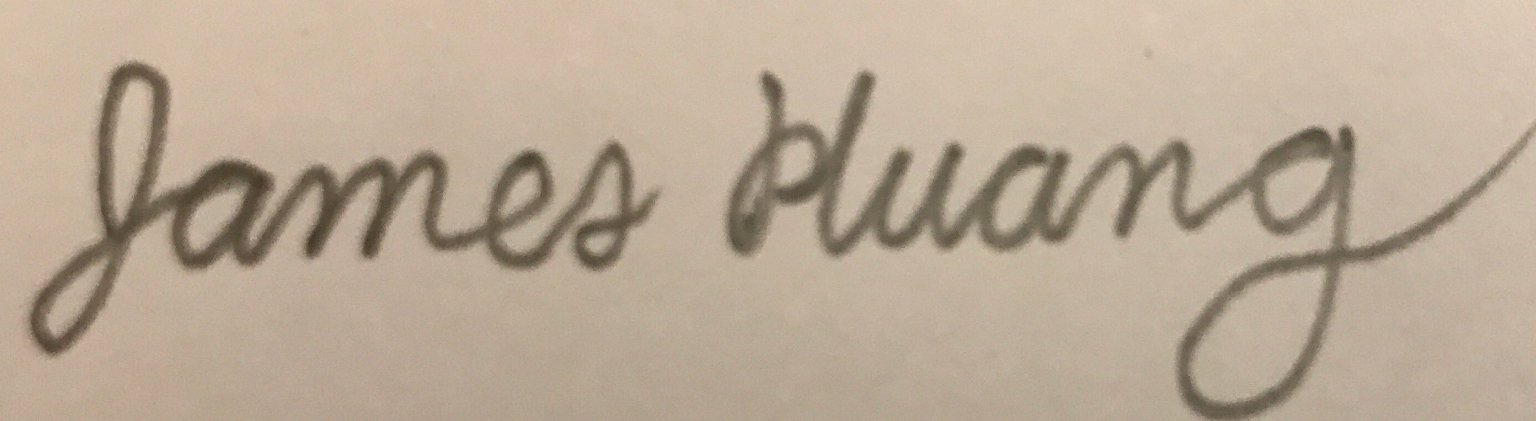 James Huang